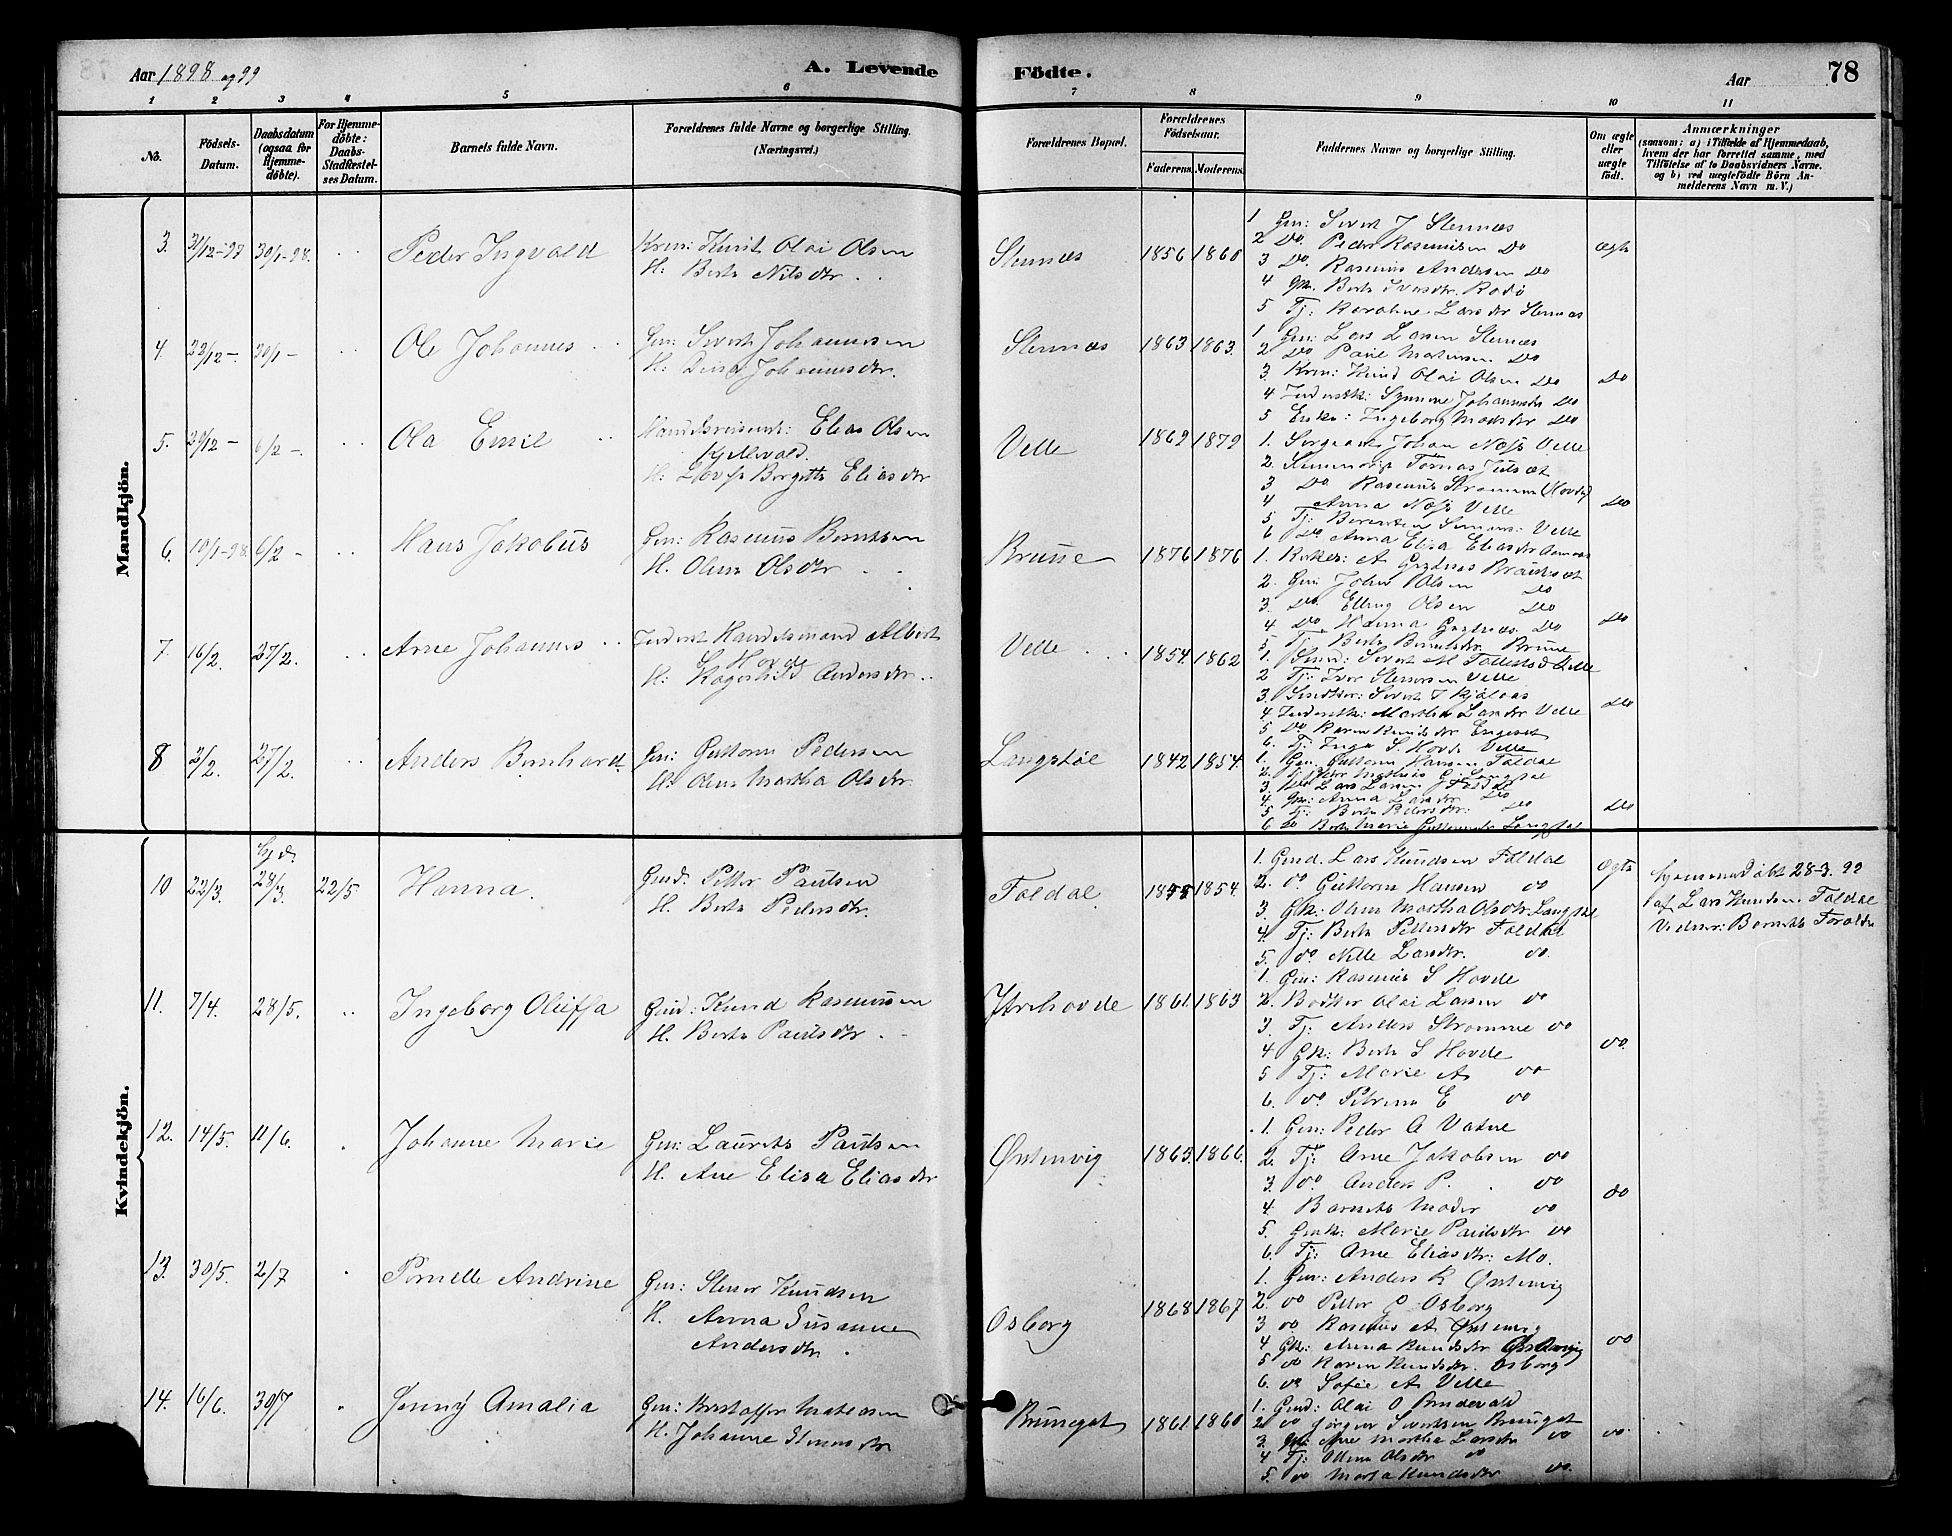 Aar 1898 og 99
A. Levende
Födte.
Aar
78
1 2 3 4 5 6 7 8 9 10 11
No.
Födsels-Datum.
Daabsdatum (ogsaa for Hjemme-döbte).
For Hjemme-döbte: Daabs-Stadfæstelses Datum.
Barnets fulde Navn.
Forældrenes fulde Navne og borgerlige Stilling.
(Næringsvei.)
Forældrenes Bopæl.
Forældrenes Födselsaar.
Faderens. Moderens.
Faddernes Navne og borgerlige Stilling.
Om ægte eller uægte födt.
Anmærkninger
(saasom: a) i Tilfælde af Hjemmedaab,
hvem der har forrettet samme, med
Tilföielse af to Daabsvidners Navne,
og b) ved uægtefödte Börn An-
melderens Navn m. V.)
Mandkjön.
3. 31/12-97 30/1-98. Peder Ingvald
Krm: Knut Olai Olsen
H: Berte Nilsdtr
Stennæs 1856 1860
1 Gm: Sivert J Stennæs
2 Do Peder Rasmusen Do
3 Do. Rasmus Andersen Do
4 Gk. Berte Iversdtr. Rødø
5 Tj: Karoline Larsdtr Stennæs
ægte
4 22/12 - 30/1 - Ole Johannes
Gm: Sivert Johannessen
H: Dina Johannesdtr.
Stennæs 1863 1863.
1. Gm: Lars Larsen Stennæs
2 Do Paul Mathisen Do
3 Krm: Knud Olai Olsen Do
4 Inderstk: Synnve Johannesdtr Do
5 Enke: Ingeborg Madsdtr Do
Do
5. 29/12 - 6/2 - Ola Emil
Handelsreisende: Elias Olsen
Gjelsvald.
H: Lovise Birgitte Eliasdtr
Velle 1869 1879
2. Tomas
3 Do Rasmus Strømme (Hovde)
4 Anna Næss Velle
5. Tj: Berentine Simons: Velle
6 Do Anna Elisa Eliasdtr
Do
6. 10/1-98. 6/2 - Hans Jakobus
Gm: Rasmus Berntsen
H. Oline Olsdtr
Brune 1876 1876
2. Gm John Olsen Do
3. Do. Elling Olsen Do
4 Do Hanna Do
5 Tj Berte Berntsdtr. Brune
Do
7. 16/2. 27/2. Arne Johannes
Inderst Handelsmand Albert
Hovde
H: Ragnhild Andersdtr.
Velle 1854. 1862
1. Sivert M Tollestad Velle
2 Tj: Iver Velle
4. Inderstk: Martha Larsdtr Velle
5 Do Karen Knudsdtr Engeset
6. Tj Inga S Hovde Velle
Do
8 2/2. 27/2. Anders Bernhard.
Gm: Guttorm Pedersen
H: Oline Martha Olsdtr.
Langstøl 1842 1854
1. Gm. Guttorm Hansen Foldal
3 Do Lars Larsen Foldal
4. Gk: Anna Larsdtr Do
5 Tj: Berte Petersdtr: Do
6 Do Berte Marie Guttormsdtr Langstøl
Do
Kvindekjön.
10 22/3. hjd. 28/3 22/5 Hanna.
Gmd. Petter Paulsen
H. Berte Pedersdtr.
Foldal. 1855 1854.
1. Gmd. Lars Knudsen Foldal
2. do Guttorm Hansen do
3. Gk: Oline Martha Olsdtr. Langstøl
4. Tj: Berte Pettersdtr Foldal
5. do Nille Larsdtr. do.
ægte
hjemmedøbt 28-3. 99
af Lars Knudsen Foldal
Vidner: Barnets Foræld
11. 7/4. 28/5. Ingeborg Oluffa
Gmd: Knud Rasmussen
H. Berte Paulsdtr.
Ytrehovde 1861. 1863
1. Gm: Rasmus S Hovde
2. Bødker Olai Larsen do
3. Tj: Anders Strømme do
4 Gk: Berte S Hovde
5 Tj: Marie A do
6. do. Petrine E do
do.
12. 14/5. 11/6. Johanne Marie
Gm: Laurits Paulsen
H. Ane Elisa Eliasdtr
Østenvig 1865. 1866.
1. Gm: Petter A Vatne
2. Tj: Arne Jakobsen do
3. do. Anders P. do
4. Barnets Moder do
5. Gmk: Marie Paulsdtr do
6. Tj: Ane Eliasdtr: Mo.
do
13. 30/5. 2/7 Pernelle Andrine
Gm: Steser Knudsen
H. Anna Susanne
Andersdtr.
Osborg 1868 1867
1. Gm: Anders R Østenvig
2. do Petter P Osborg
3 do Rasmus A Østenvig
4 Gk: Anna Knudsdtr Østenvig
5 do Karen Knudsdtr. Osborg
6. do Sofie A Velle
do
14. 16/6. 30/7 Jenny Amalia
Gm: Kristoffer Mathisen
H. Johanne
Bruneset 1861. 1860
1. Gmd: Olai O Brudevold
2 do Jørgen Sivertsen Bruneset
3. Gk: Ane Martha Larsdtr do
4 Tj: Oline Olsdtr do
5. do Marta Knudsdtr do.
do.